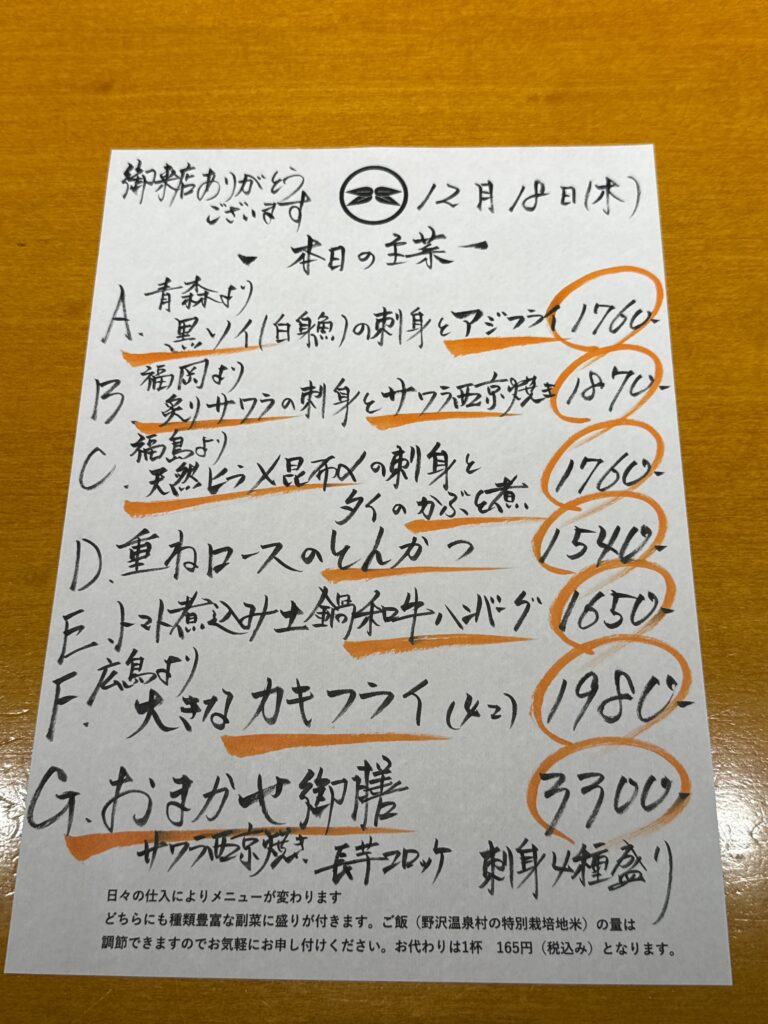 御来店ありがとう
ございます
12月18日(木)
- 本日の主菜 -
青森より
A. 黒ソイ(白身魚)の刺身とアジフライ 1760-
福岡より
B. 炙りサワラの刺身とサワラ西京焼き 1870-
福島より
C. 天然ヒラメ昆布〆の刺身と
タイのかぶと煮 1760-
D. 重ねロースのとんかつ 1540-
E. トマト煮込み土鍋和牛ハンバーグ 1650-
広島より
F. 大きなカキフライ(4コ) 1980-
G. おまかせ御膳 3300-
サワラ西京焼き 長芋コロッケ 刺身4種盛り
日々の仕入によりメニューが変わります
どちらにも種類豊富な副菜に盛りが付きます。ご飯（野沢温泉村の特別栽培地米）の量は
調節できますのでお気軽にお申し付けください。お代わりは1杯 165円（税込み）となります。